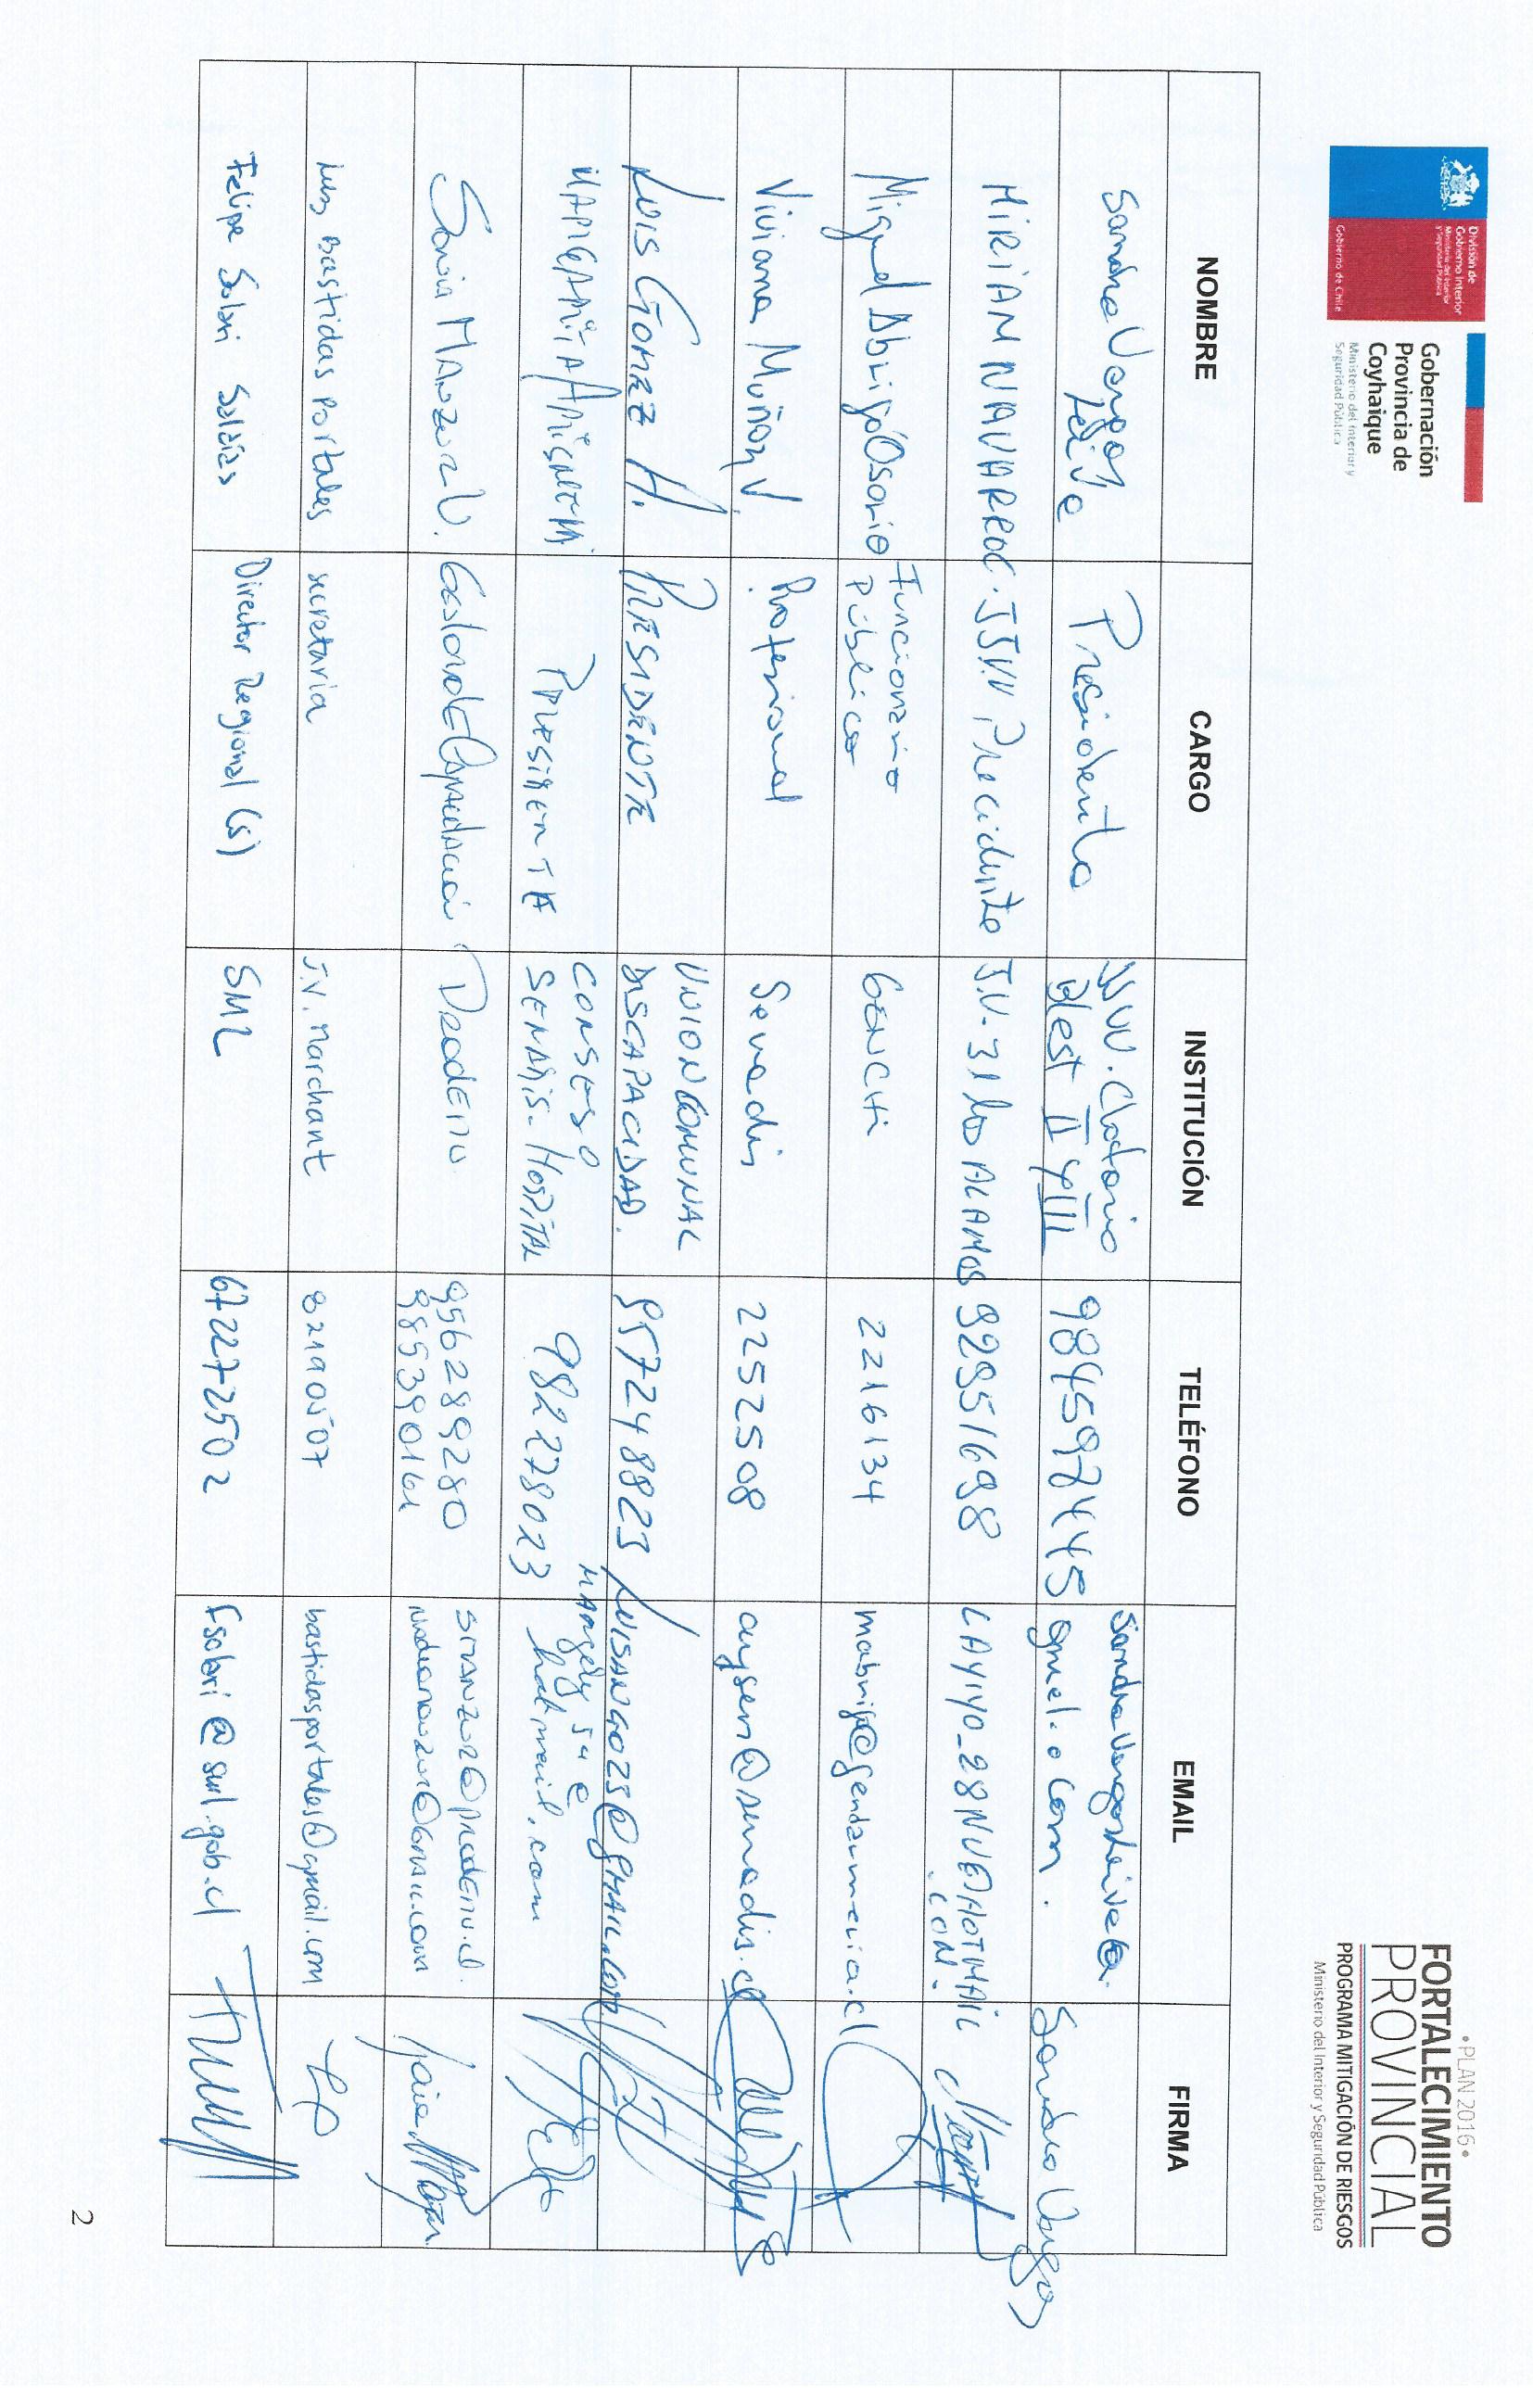 División de
Gobierno Interior
Ministerio del Interior
y Seguridad Pública
Gobierno de Chile
Gobernación
Provincia de
Coyhaique
Ministerio del Interior y
Seguridad Pública
• PLAN 2016 •
FORTALECIMIENTO
PROVINCIAL
PROGRAMA MITIGACIÓN DE RIESGOS
Ministerio del Interior y Seguridad Pública
NOMBRE CARGO INSTITUCIÓN TELÉFONO EMAIL FIRMA
Sandra Vargas Leive Presidenta JJVV. Clotario Blest II y III 984597445 SandraVargasLeive@gmail.com. Sandra Vargas
MIRIAM NAVARRO C. JJ.VV Precidente J.V. 31 los ALAMOS 92951698 LAYIYO_28NU@HOTMAIL.COM.
Miguel Abrigo Osorio Funcionario Público GENCHI 2216134 mabrigo@gendarmeria.cl
Viviana Muñoz V. Profesional Senadis 2252508 aysen@senadis.cl
LUIS GOMEZ A. PRESIDENTE UNION COMUNAL DISCAPACIDAD. 957248823 LUISANGO23@GMAIL.COM
MARGARITA PRESIDENTE CONSEJO SENADIS-HOSPITAL 982278023 hotmail.com
Sonia MANZUR V. Gestora de Capacitación Prodemu 956289280 SMANZUR@prodemu.cl.
Luz Bastidas Portales secretaria J.V. Marchant 82190507 bastidasportales@gmail.com
Felipe Solari Saldías Director Regional (s) SML 672272502 fsolari@sml.gob.cl
2